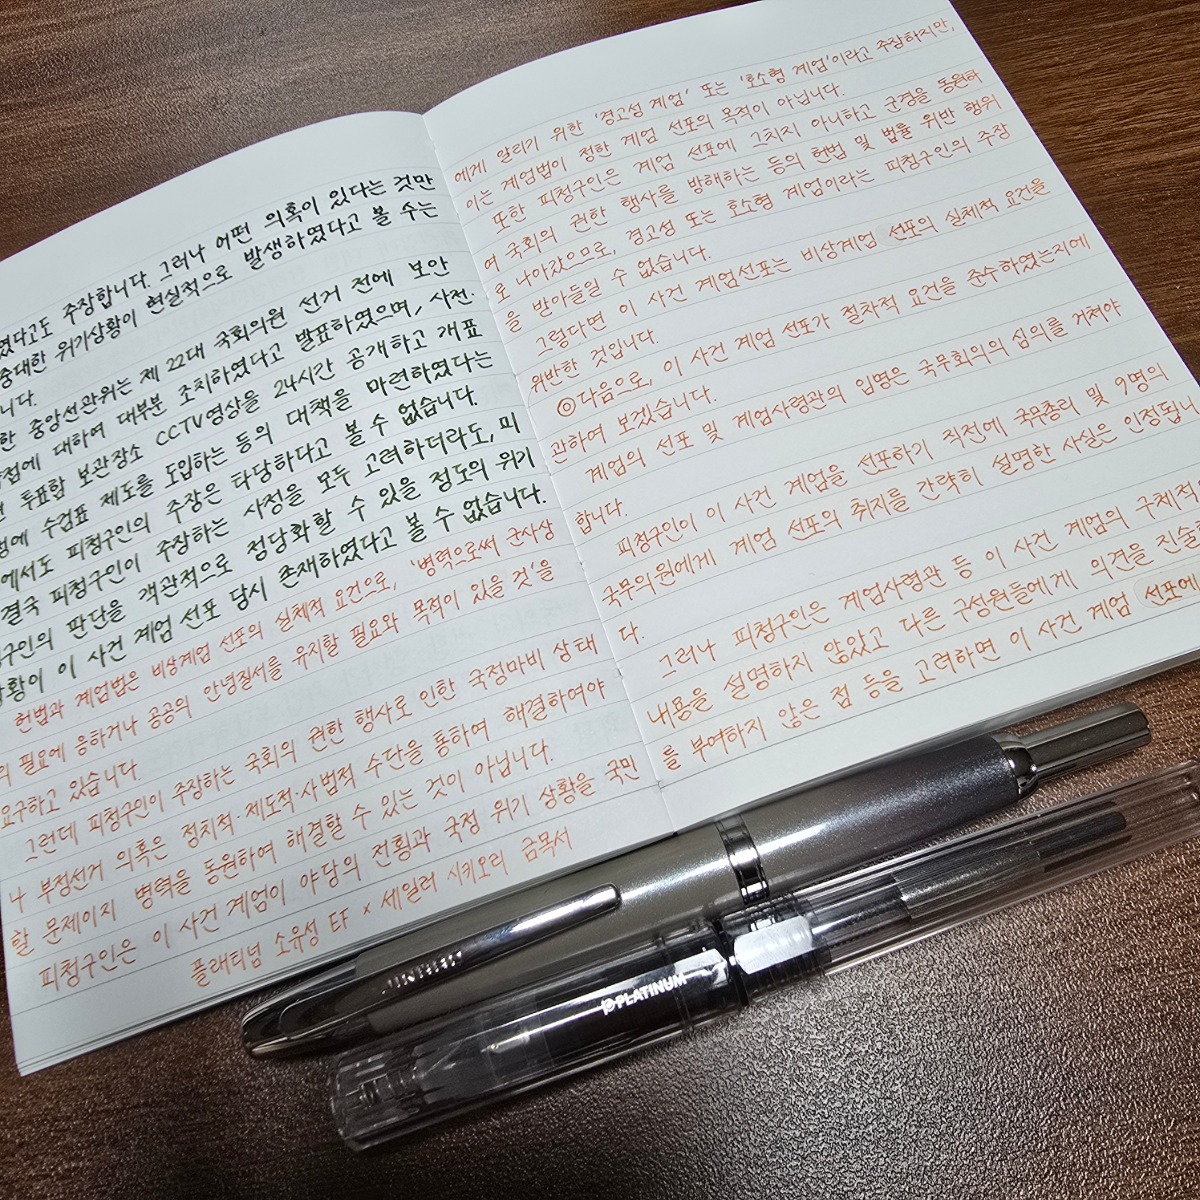 였다고도 주장합니다. 그러나 어떤 의혹이 있다는 것만
중대한 위기상황이 현실적으로 발생하였다고 볼 수는
니다.
한 중앙선관위는 제 22대 국회의원 선거 전에 보안
점에 대하여 대부분 조치하였다고 발표하였으며, 사전·
투표함 보관장소 CCTV영상을 24시간 공개하고 개표
에 수검표 제도를 도입하는 등의 대책을 마련하였다는
에서도 피청구인의 주장은 타당하다고 볼 수 없습니다.
결국 피청구인이 주장하는 사정을 모두 고려하더라도, 피
구인의 판단을 객관적으로 정당화할 수 있을 정도의 위기
상황이 이 사건 계엄 선포 당시 존재하였다고 볼 수 없습니다.
헌법과 계엄법은 비상계엄 선포의 실체적 요건으로, '병력으로써 군사상
의 필요에 응하거나 공공의 안녕질서를 유지할 필요와 목적이 있을 것'을
요구하고 있습니다.
그런데 피청구인이 주장하는 국회의 권한 행사로 인한 국정마비 상태
나 부정선거 의혹은 정치적·제도적·사법적 수단을 통하여 해결하여야
할 문제이지 병력을 동원하여 해결할 수 있는 것이 아닙니다.
피청구인은 이 사건 계엄이 야당의 전횡과 국정 위기 상황을 국민
플래티넘 소유성 EF × 세일러 시키오리 금목서
에게 알리기 위한 '경고성 계엄' 또는 '호소형 계엄'이라고 주장하지만,
이는 계엄법이 정한 계엄 선포의 목적이 아닙니다.
또한 피청구인은 계엄 선포에 그치지 아니하고 군경을 동원하
여 국회의 권한 행사를 방해하는 등의 헌법 및 법률 위반 행위
로 나아갔으므로, 경고성 또는 호소형 계엄이라는 피청구인의 주장
을 받아들일 수 없습니다.
그렇다면 이 사건 계엄선포는 비상계엄 선포의 실체적 요건을
위반한 것입니다.
◎다음으로, 이 사건 계엄 선포가 절차적 요건을 준수하였는지에
관하여 보겠습니다.
계엄의 선포 및 계엄사령관의 임명은 국무회의의 심의를 거쳐야
합니다.
피청구인이 이 사건 계엄을 선포하기 직전에 국무총리 및 9명의
국무의원에게 계엄 선포의 취지를 간략히 설명한 사실은 인정됩니
다.
그러나 피청구인은 계엄사령관 등 이 사건 계엄의 구체적
내용을 설명하지 않았고 다른 구성원들에게 의견을 진술
를 부여하지 않은 점 등을 고려하면 이 사건 계엄 선포에
PLATINUM